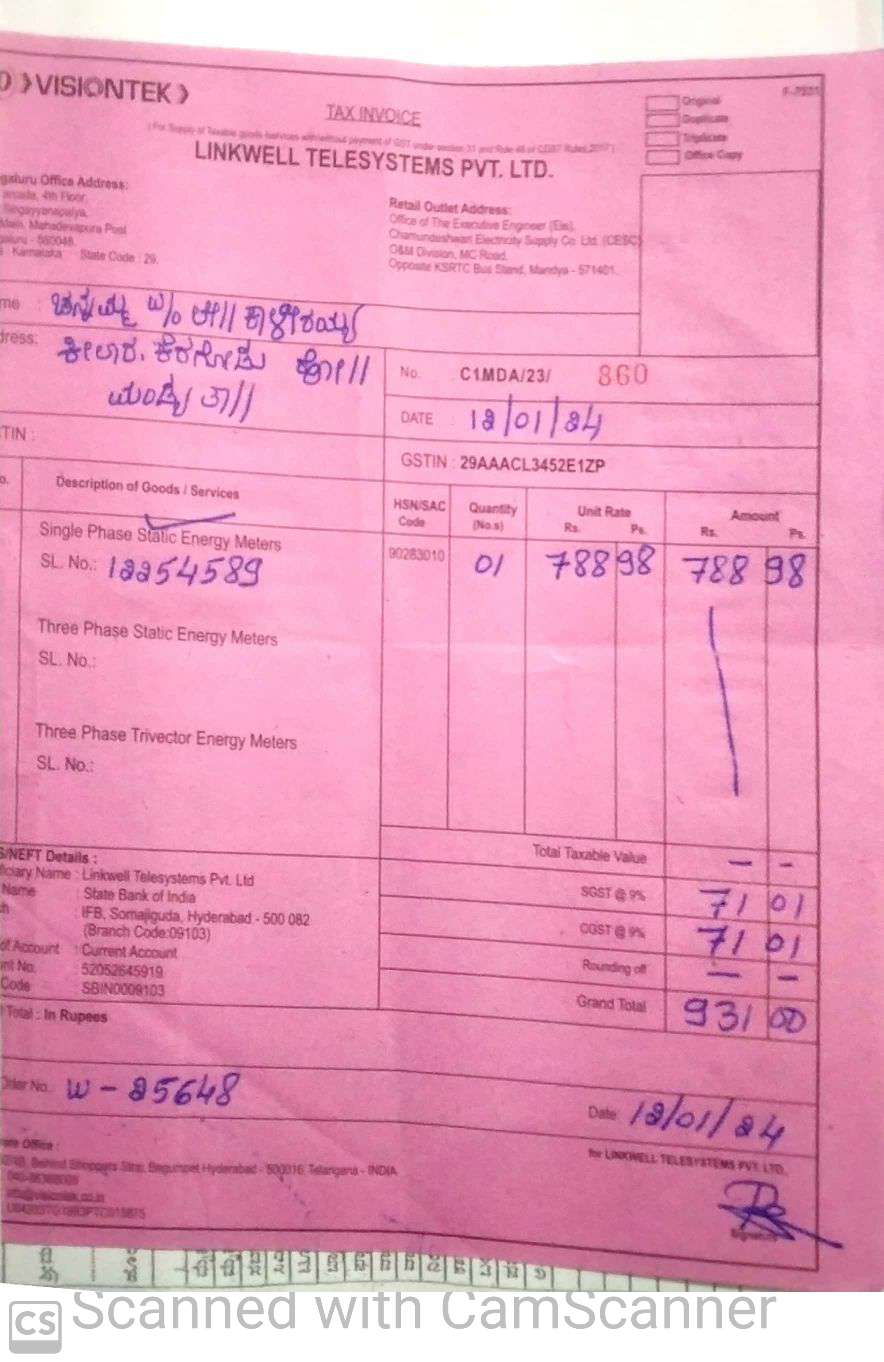 VISIONTEK
F-7201
TAX INVOICE
Original
Duplicate
Triplicate
Office Copy
(For Supply of Taxable goods /services with/without payment of GST under section 31 and Rule 46 of CGST Rules, 2017)
LINKWELL TELESYSTEMS PVT. LTD.
galuru Office Address:
4th Floor,
Main, Mahadevapura Post
galuru - 560048.
Karnataka State Code : 29.
Retail Outlet Address:
Office of The Executive Engineer (Ele),
Chamundeshwari Electricity Supply Co. Ltd. (CESC)
O&M Division, MC Road,
Opposite KSRTC Bus Stand, Mandya - 571401.
me :
dress:
ಮಂಡ್ಯ ತಾ//
No. C1MDA/23/ 860
DATE : 12/01/24
TIN :
GSTIN : 29AAACL3452E1ZP
o. Description of Goods / Services HSN/SAC Code Quantity (No.s) Unit Rate Rs. Ps. Amount Rs. Ps.
Single Phase Static Energy Meters
SL. No.: 12254589 90283010 01 788 98 788 98
Three Phase Static Energy Meters
SL. No.:
Three Phase Trivector Energy Meters
SL. No.:
Total Taxable Value — -
S/NEFT Details :
ficiary Name : Linkwell Telesystems Pvt. Ltd
Name : State Bank of India
h : IFB, Somajiguda, Hyderabad - 500 082
(Branch Code:09103)
of Account : Current Account
nt No. : 52052645919
Code : SBIN0009103
SGST @ 9% 71 01
CGST @ 9% 71 01
Rounding off — -
Grand Total 931 00
Total : In Rupees
Order No. W - 25648
Date: 12/01/24
for LINKWELL TELESYSTEMS PVT. LTD.
Office :
Behind Shoppers Stop, Begumpet Hyderabad - 500016. Telangana - INDIA
info@visiontek.co.in
Signature
CS Scanned with CamScanner